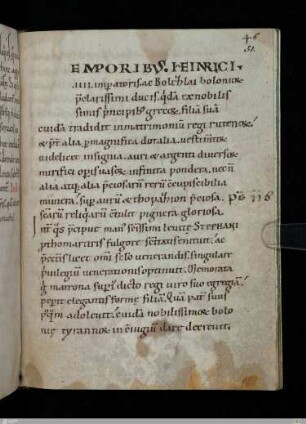 EMPORIBVS HEINRICI
IIII. imperatoris ac Bolezlai bolonice
p̄clarissimi ducis. quedā ex nobilis
simis p̄ncipib; grecę. filiā suā
cuidā tradidit in matrimoniū regi rutenoꝝ.
& p̄t alia p̄magnifica dotalia. uestm̄toꝝ
uidelicet insignia. auri & argenti diuersoꝝ
mirifici opis uasoꝝ infinita pondera. necn̄
alia atq; alia p̄ciosarū rerū ccupiscibilia
munera. sup aurū & thopaziō p̄ciosa.
scarū reliquiarū ctulit pignera gloriosa.
int̄ q̄s p̄cipue manū scissimi leuitę STEPHANI
p̄thomartiris fulgore scitatis entitut. ac
p̄ceteris licet omi sclo uenerandis. singulare
p̄uilegiū uenerationis optinuit. Memorata
g̊ matrona supdicto regi uiro suo egregiā
pep̄it elegantis formę filiā. Quā pat̄ suus
p̄q̄m adoleuit. cuidā nobilissimoꝝ bolo
nię tyrannoꝝ in cōiugiū dare decreuit.